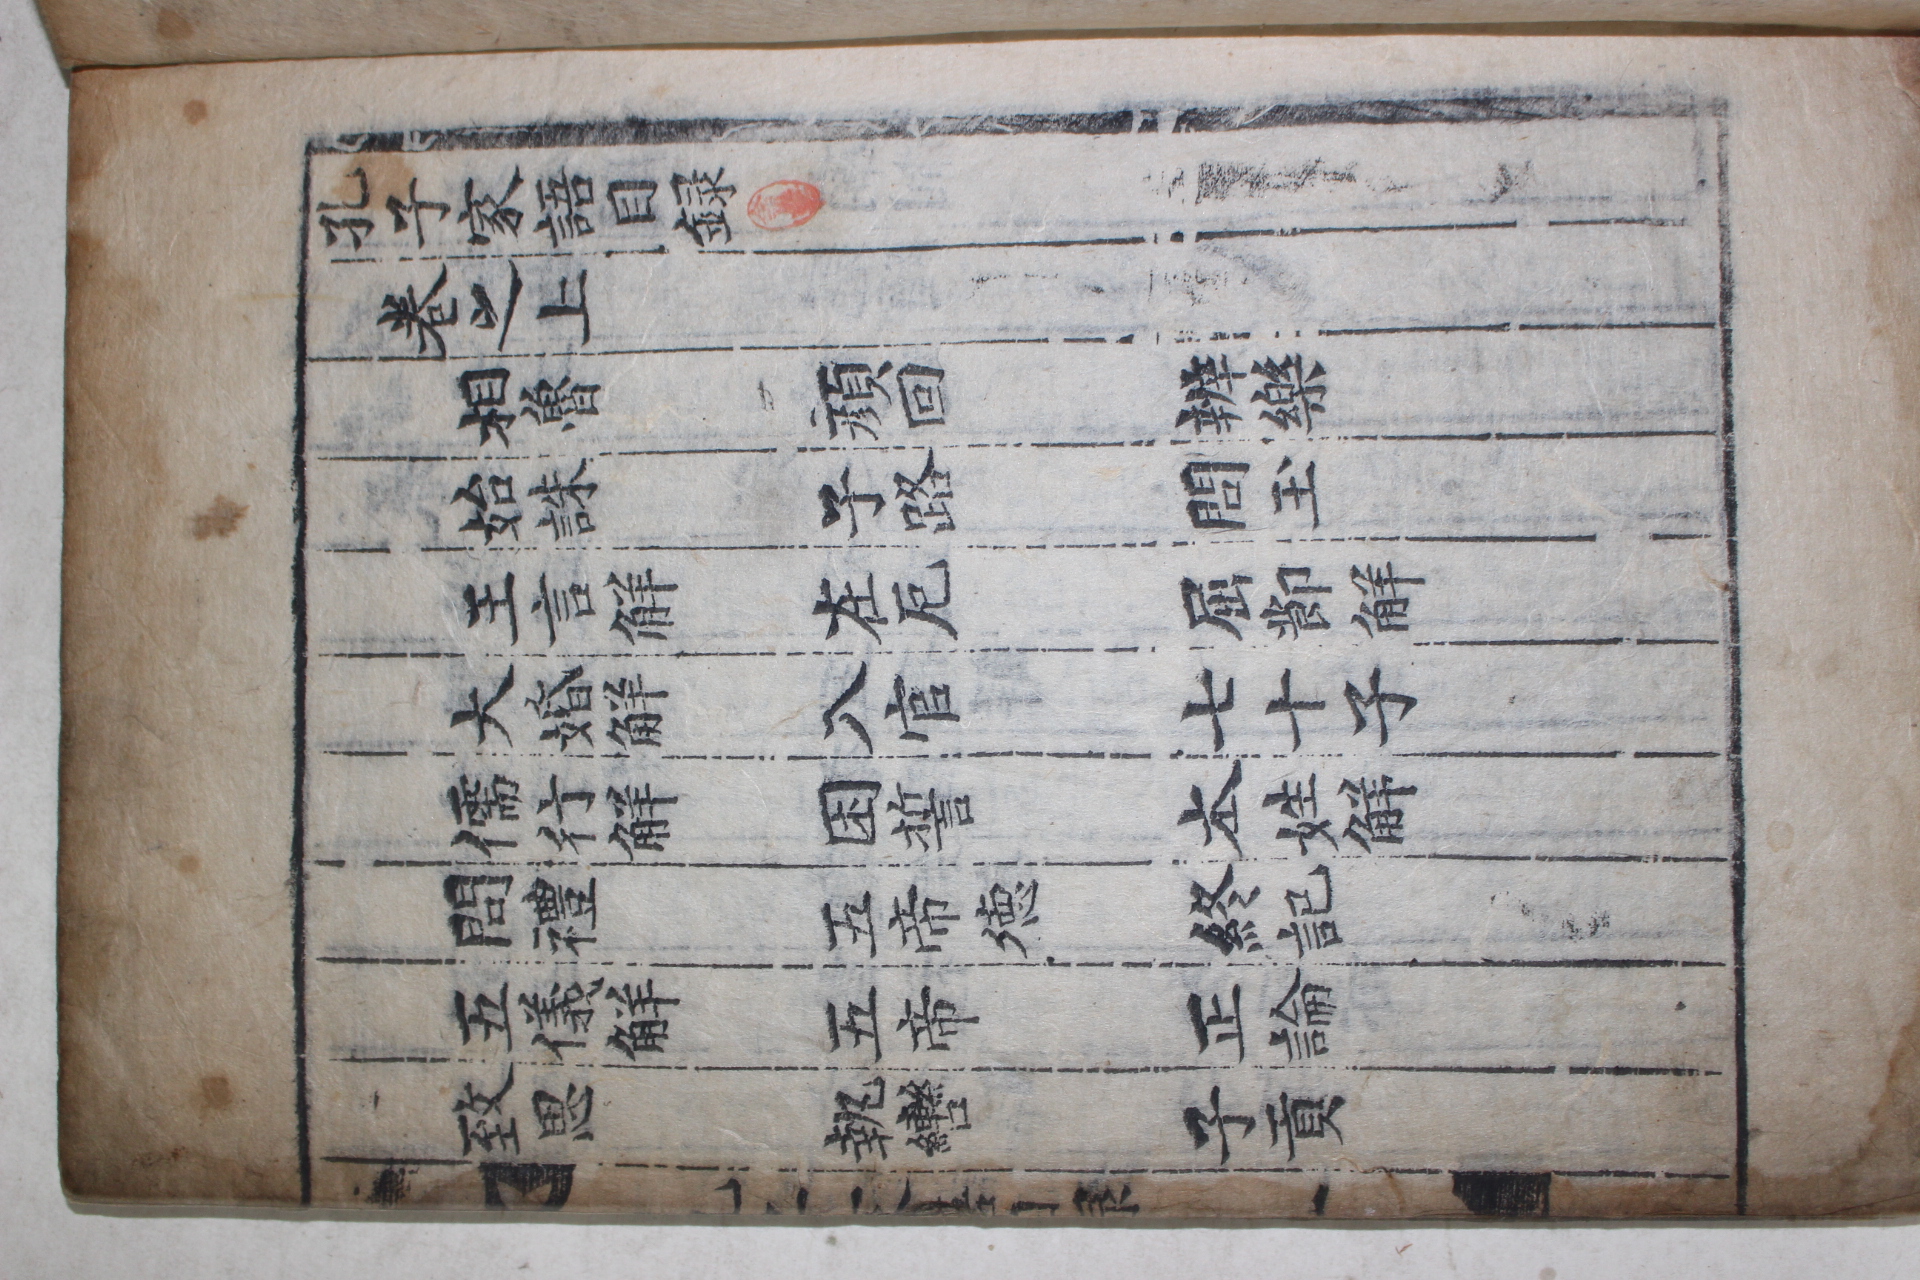 孔子家語目録
卷之上
相魯　顔回　辨樂
始誅　子路　問玉
王言解　在厄　屈節解
大婚解　八官　七十子
儒行解　困誓　本姓解
問禮　五帝德　終記
五儀解　五帝　正論
致思　執轡　子貢